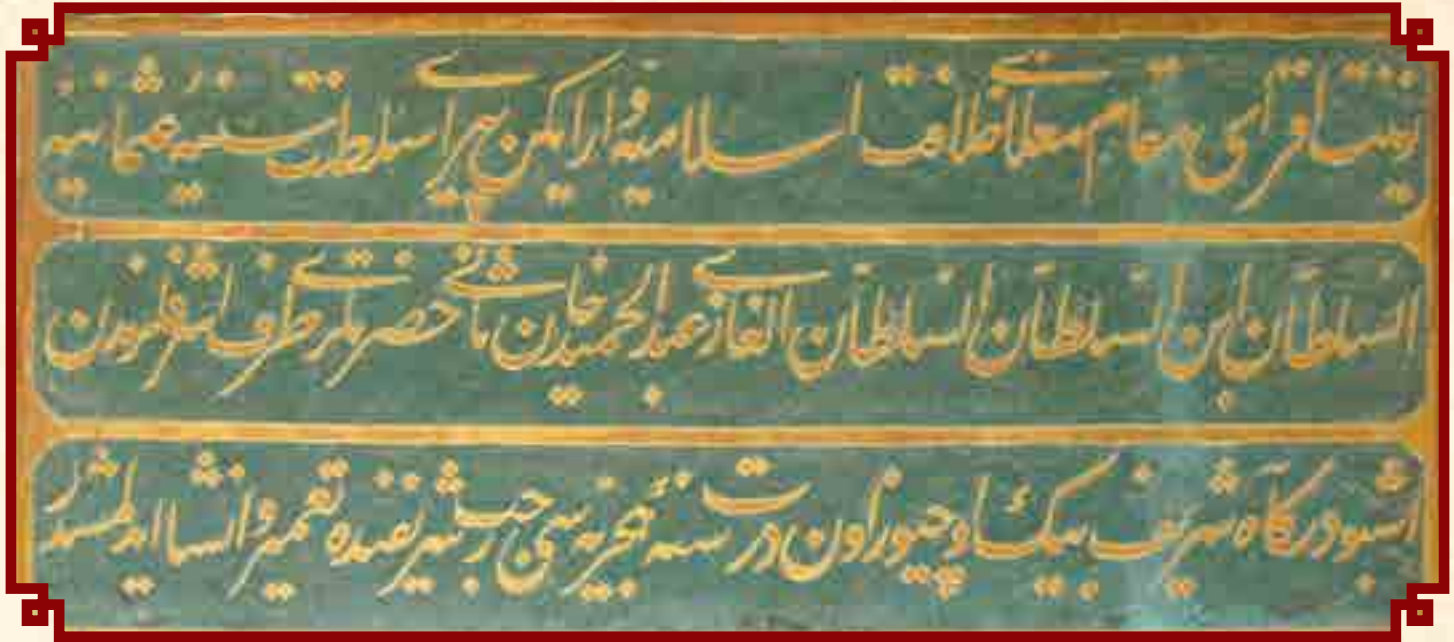 زينتساز قرای مقام معلای خلافت اسلاميه و اراکين پيرای سلطنت سنيه عثمانيه
السلطان ابن السلطان السلطان الغازی عبد الحميد خان ثانی حضرتلری طرف اشرفلرندن
اشبو درگاه شريف بيک اوچيوز اون درت سنهٔ هجريه سی رجب شريفنده تعمير و انشا ايدلمشدر